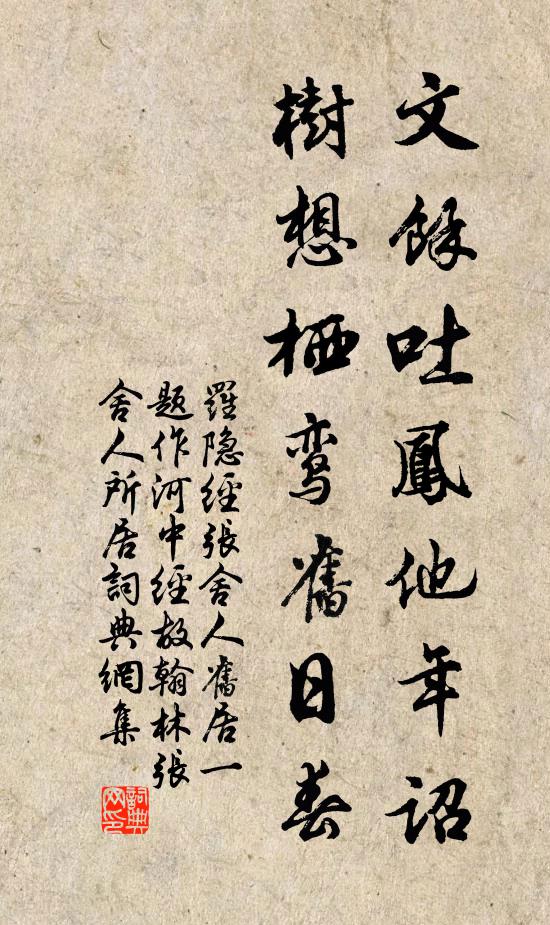 文餘吐鳳他年詔
樹想栖鸾舊日春
羅隐經張舍人舊居一
題作河中經故翰林張
舍人所居詞典網集
詞典
网印